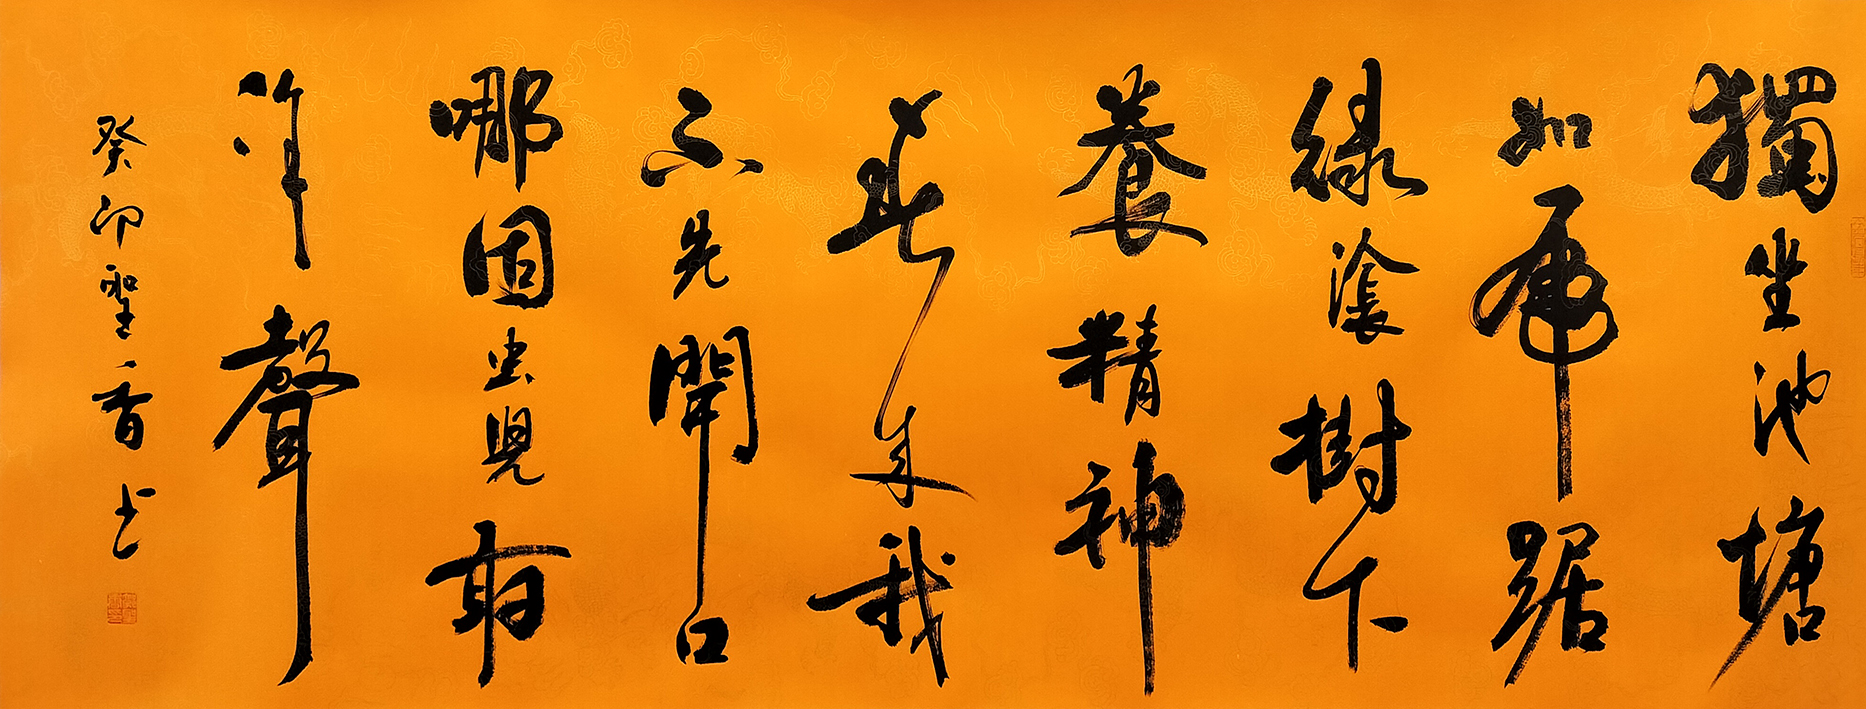 獨坐池塘
如虎踞
綠樹下
養精神
春來我
不先開口
哪個虫兒敢
作聲
癸卯聖一香书